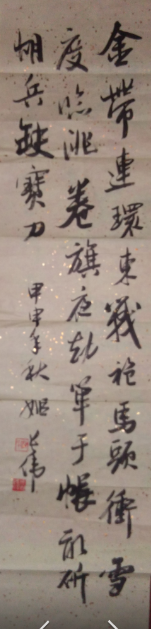 金帶連環束戰袍馬頭衝雪
度臨洮卷旗夜劫單于帳亂斫
胡兵缺寶刀 甲申年秋